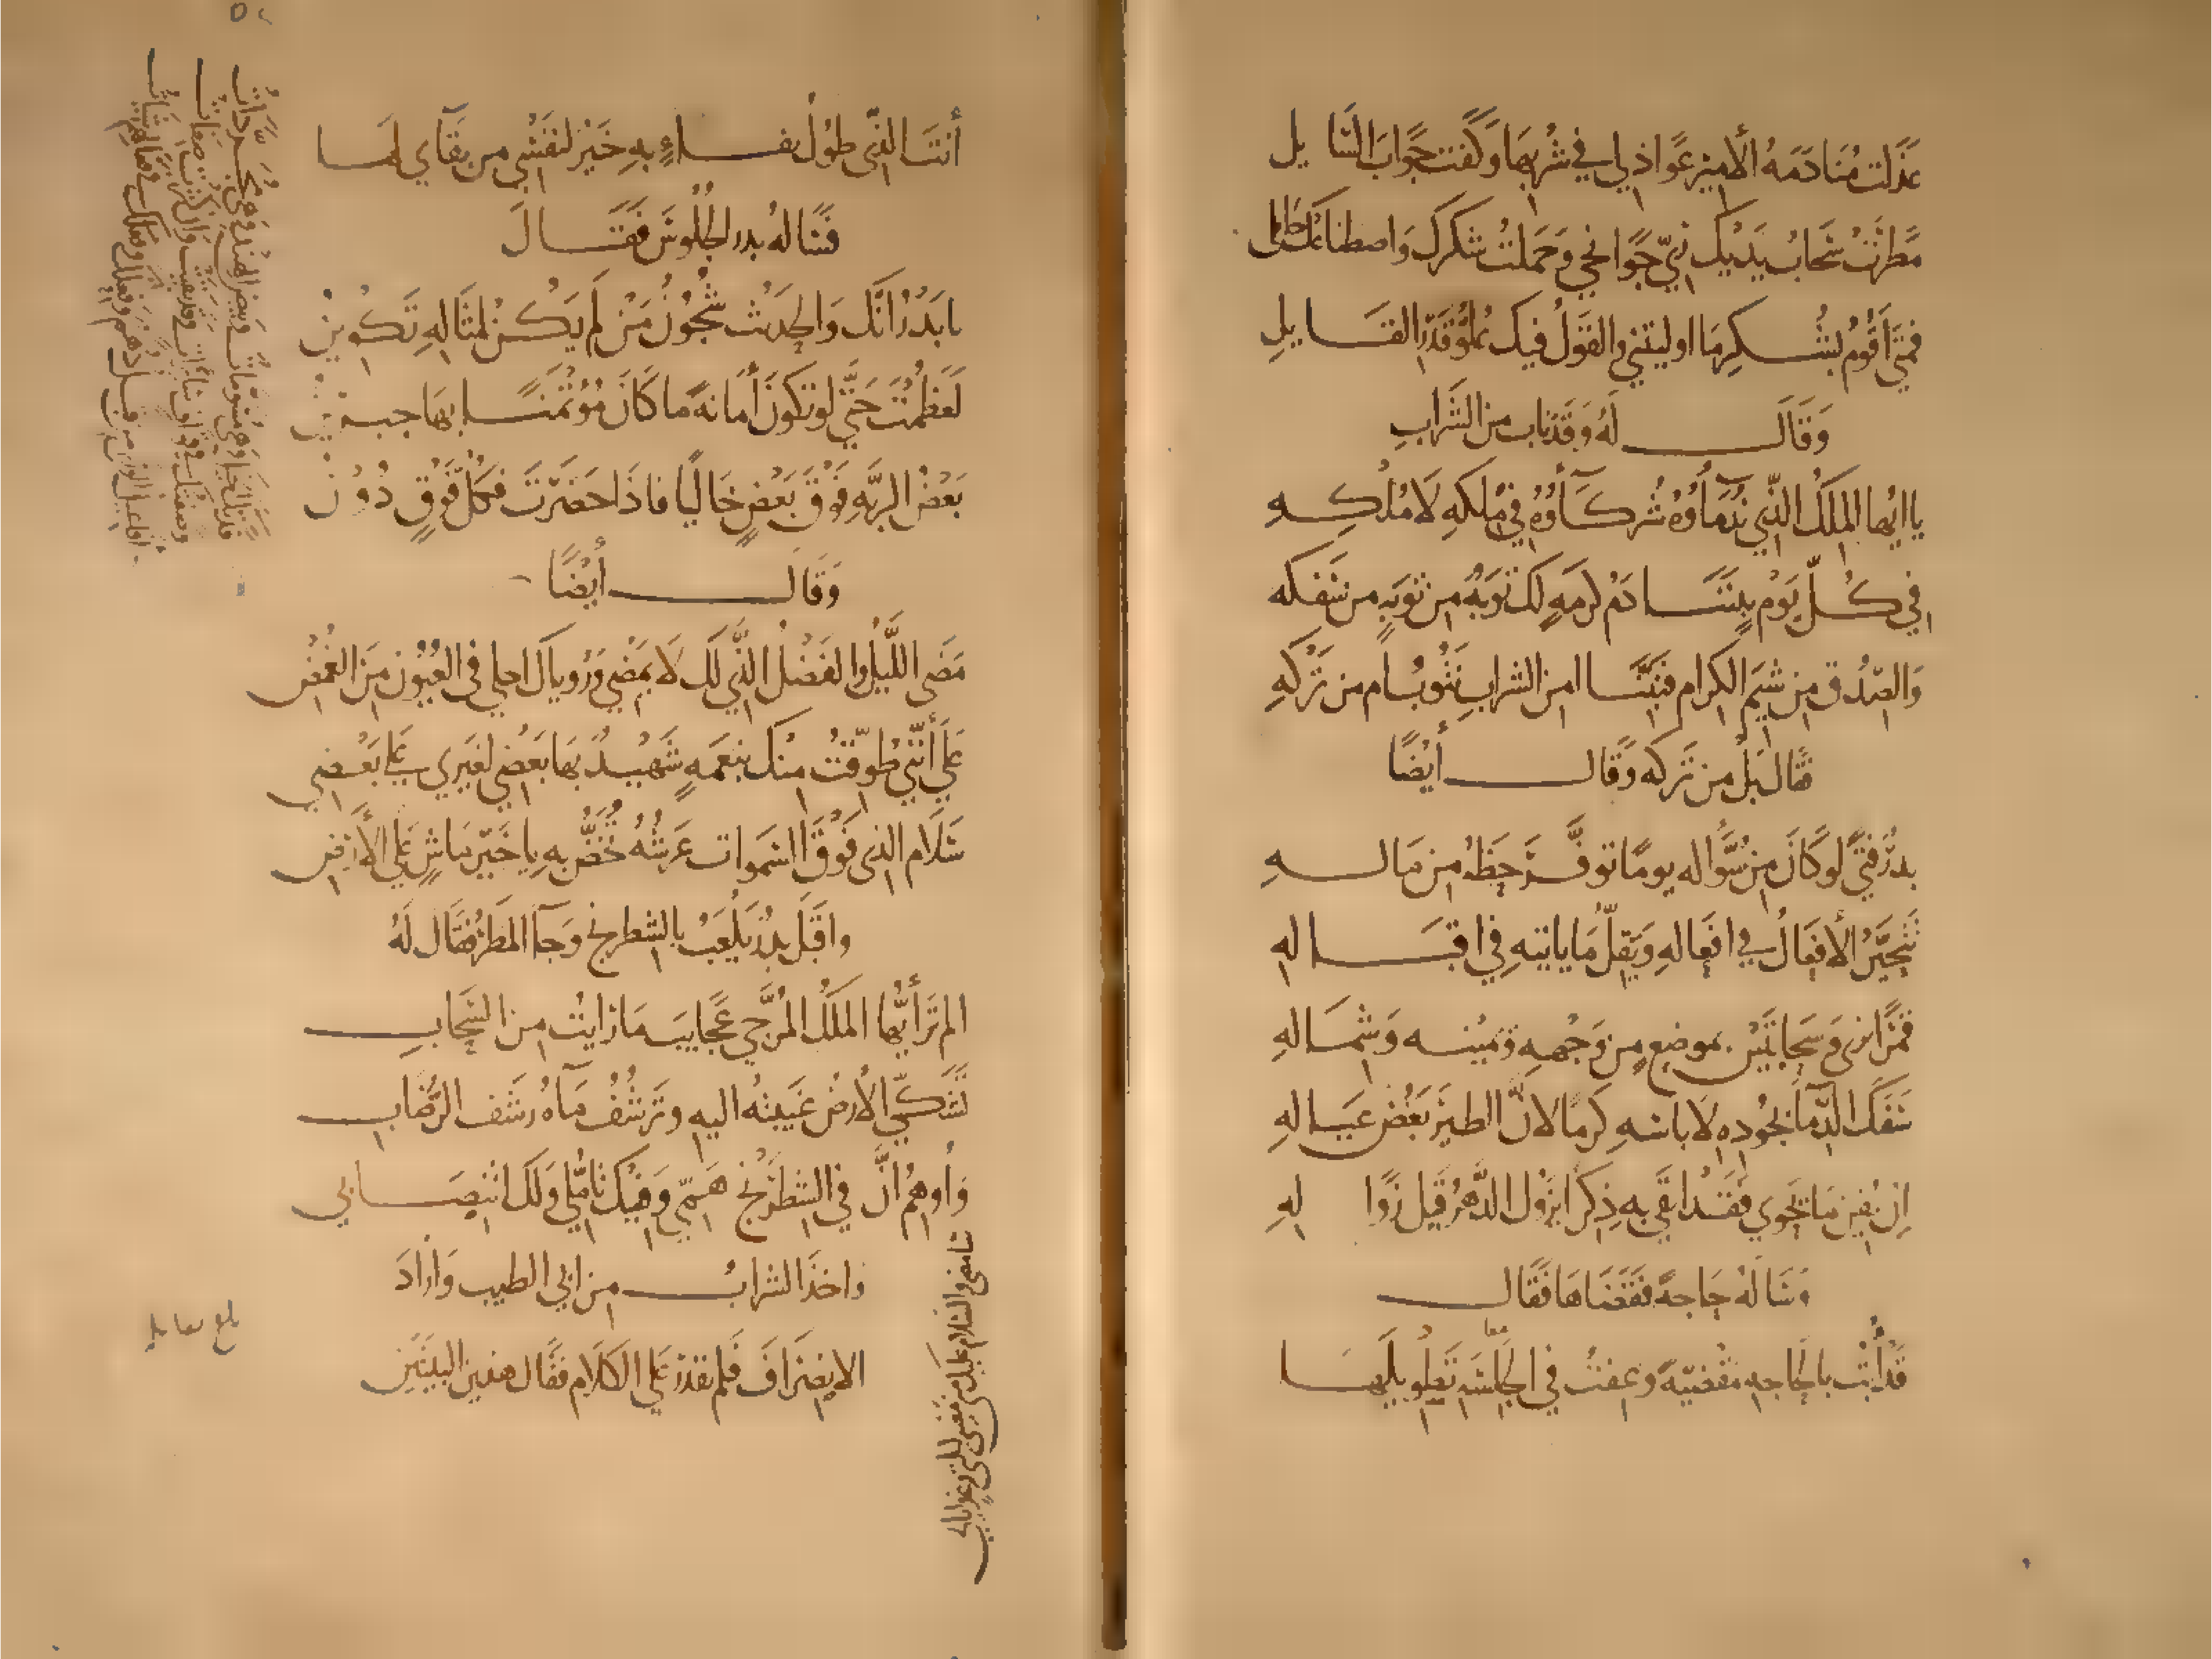 عذلت منادمة الأمير عواذلي في شربها وكفت جواب السايل
مطرت سحاب يديك ريّ جوانحي وحملت شكرك واصطناعك حاملي
فمتى أقوم بشكر ما اوليتني والقول فيك علو قدر القايل
وقال له وقد تاب من الشراب
يا ايها الملك الذي ندمآؤه شركآؤه في ملكه لا ملكه
في كل يوم بيننا دم كرمه لك توبة من توبه من سفكه
والصدق من شيم الكرام فنبنا امن الشراب تتوب ام من تركه
فقال بل من تركه وقال أيضًا
بدر فتى لو كان من سؤاله يوما توفر حظه من ماله
تتحير الأفعال في افعاله ويقل ما ياتيه في اقباله
قمرا نرى وسحابتين بموضع من وجهه ويمينه وشماله
سفك الدمآ بجوده لا باسه كرما لان الطير بعض عياله
ان يفن ما يحوي فقد ابقى به ذكرا يزول الدهر قبل زواله
وساله حاجة فقضاها فقال
قد أبت بالحاجه مقضيه وعفت في الجلسة تطويلها
أنت الذي طول بقاء به خير لنفسي من بقآي لها
فساله بدر الجلوس فقال
يا بدر انك والحديث شجون من لم يكن لمثاله تكوين
لعظمت حتى لو تكون أمانة ما كان مؤتمنا بها جبرين
بعض البريه فوق بعض خاليا فاذا حضرت فكل فوق دون
وقال أيضًا
مضى الليل والفضل الذي لك لا يمضي ورؤياك احلى في العيون من الغمض
على أنني طوقت منك بنعمة شهيد بها بعضي لغيري على بعضي
سلام الذي فوق السموات عرشه تخص به يا خير ماش على الأرض
واقبل بدر يلعب بالشطرنج وجآ المطر فقال له
الم تر أيها الملك المرجي عجايب ما رايت من السحاب
تشكي الارض غيبته اليه وترشف مآه رشف الرضاب
وأوهم ان في الشطرنج همي وفيك تاملي ولك انتصابي
سامضي والسلام عليك مني مغيبي ليلتي وغدا ايابي
واخذ الشراب من ابي الطيب واراد
الانصراف فلم يقدر على الكلام فقال هذين البيتين
بلغ مقابله